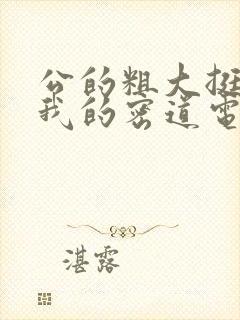 公的粗大挺
我的密道电
湛露